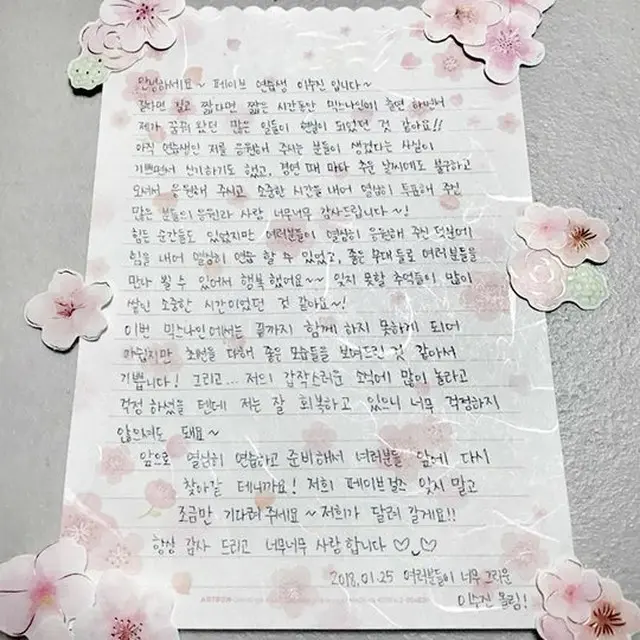 안녕하세요~ 페이브 연습생 이수진 입니다~
길다면 길고 짧다면 짧은 시간동안 믹스나인에 출연 하면서
제가 꿈꿔 왔던 많은 일들이 현실이 되었던 것 같아요!!
아직 연습생인 저를 응원해 주시는 분들이 생겼다는 사실이
기쁘면서 신기하기도 했고, 경연 때 마다 추운 날씨에도 불구하고
오셔서 응원해 주시고 소중한 시간을 내어 열심히 투표해 주신
많은 분들의 응원과 사랑 너무너무 감사드립니다~!
힘든 순간들도 있었지만 여러분들이 열심히 응원해 주신 덕분에
힘을 내어 열심히 연습 할 수 있었고, 좋은 무대들로 여러분들을
만나 뵐 수 있어서 행복했어요~~ 잊지 못할 추억들이 많이
쌓인 소중한 시간이었던 것 같아요~!
이번 믹스나인에서는 끝까지 함께 하지 못하게 되어
아쉽지만 최선을 다해 좋은 모습들을 보여드린 것 같아서
기쁩니다! 그리고... 저의 갑작스러운 소식에 많이 놀라고
걱정 하셨을 텐데 저는 잘 회복하고 있으니 너무 걱정하지
않으셔도 돼요~
앞으로 열심히 연습하고 준비해서 여러분들 앞에 다시
찾아갈 테니까요! 저희 페이브걸즈 잊지 말고
조금만 기다려주세요~ 저희가 달려 갈게요!!
항상 감사 드리고 너무너무 사랑 합니다 ♡_♡
2018.01.25 여러분들이 너무 그리운
이수진 올림!